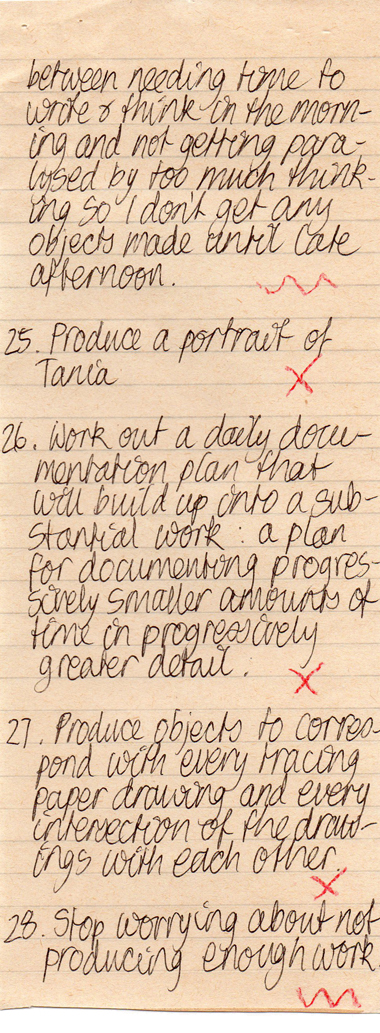 between needing time to
write & think in the morn-
ing and not getting para-
lysed by too much think-
ing so I don't get any
objects made until late
afternoon.
25. Produce a portrait of
Tania
26. Work out a daily docu-
mentation plan that
will build up into a sub-
stantial work : a plan
for documenting progres-
sively smaller amounts of
time in progressively
greater detail.
27. Produce objects to corres-
pond with every tracing
paper drawing and every
intersection of the draw-
ings with each other.
28. Stop worrying about not
producing enough work.